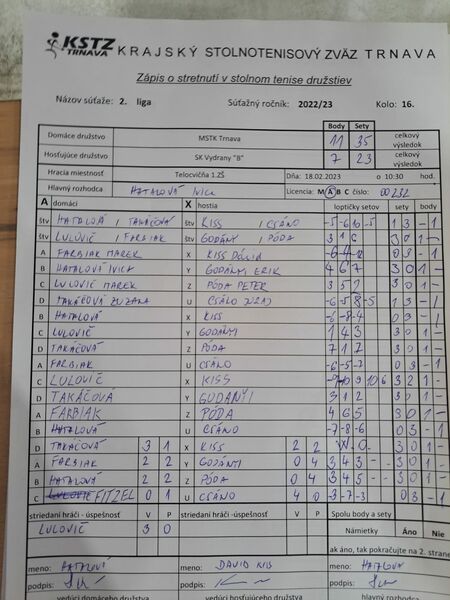 KSTZ
TRNAVA
KRAJSKÝ STOLNOTENISOVÝ ZVÄZ TRNAVA
Zápis o stretnutí v stolnom tenise družstiev
Názov súťaže: 2. liga Súťažný ročník: 2022/23 Kolo: 16.
Body Sety
Domáce družstvo MSTK Trnava 11 35 celkový výsledok
Hosťujúce družstvo SK Vydrany "B" 7 23 celkový výsledok
Hracia miestnosť Telocvičňa 1.ZŠ Dňa: 18.02.2023 o 10:30 hod.
Hlavný rozhodca HATALOVÁ Ivica Licencia: M A B C číslo: 00232
A domáci X hostia loptičky setov sety body
štv HATALOVÁ / TAKÁČOVÁ štv KISS / CSÁNO -5 -6 10 -5 1 3 - 1
štv LULOVIČ / FARBIAK štv GODÁNYI / PÓDA 3 1 6 3 0 1 -
A FARBIAK MAREK X KISS DÁVID -6 -4 -2 0 3 - 1
B HATALOVÁ IVICA Y GODÁNYI ERIK 4 6 7 3 0 1 -
C LULOVIČ MAREK Z PÓDA PETER 3 5 3 0 1 -
D TAKÁČOVÁ ZUZANA U CSÁNO -6 -5 8 -5 1 3 - 1
B HATALOVÁ X KISS -6 -8 -4 0 3 - 1
C LULOVIČ Y GODÁNYI 1 4 3 3 0 1 -
D TAKÁČOVÁ Z PÓDA 7 1 7 3 0 1 -
A FARBIAK U CSÁNO -6 -5 -7 0 3 - 1
C LULOVIČ X KISS -9 10 9 10 6 3 2 1 -
D TAKÁČOVÁ Y GODÁNYI 3 1 2 3 0 1 -
A FARBIAK Z PÓDA 4 6 5 3 0 1 -
B HATALOVÁ U CSÁNO -7 -8 -6 0 3 - 1
D TAKÁČOVÁ 3 1 X KISS 2 2 W.O. 3 0 1 -
A FARBIAK 2 2 Y GODÁNYI 0 4 3 4 3 - - 3 0 1 -
B HATALOVÁ 2 2 Z PÓDA 0 4 3 4 5 - - 3 0 1 -
C LULOVIČ FITZEL 0 1 U CSÁNO 4 0 -3 -7 -3 0 3 - 1
striedaní hráči - úspešnosť V P striedaní hráči -úspešnosť V P Spolu body a sety
LULOVIČ 3 0 Námietky Áno Nie
ak áno, tak pokračujte na 2. strane
meno: HATALOVÁ meno: DAVID KISS meno: HATALOVÁ
podpis: podpis: podpis:
vedúci domáceho družstva vedúci hosťujúceho družstva hlavný rozhodca